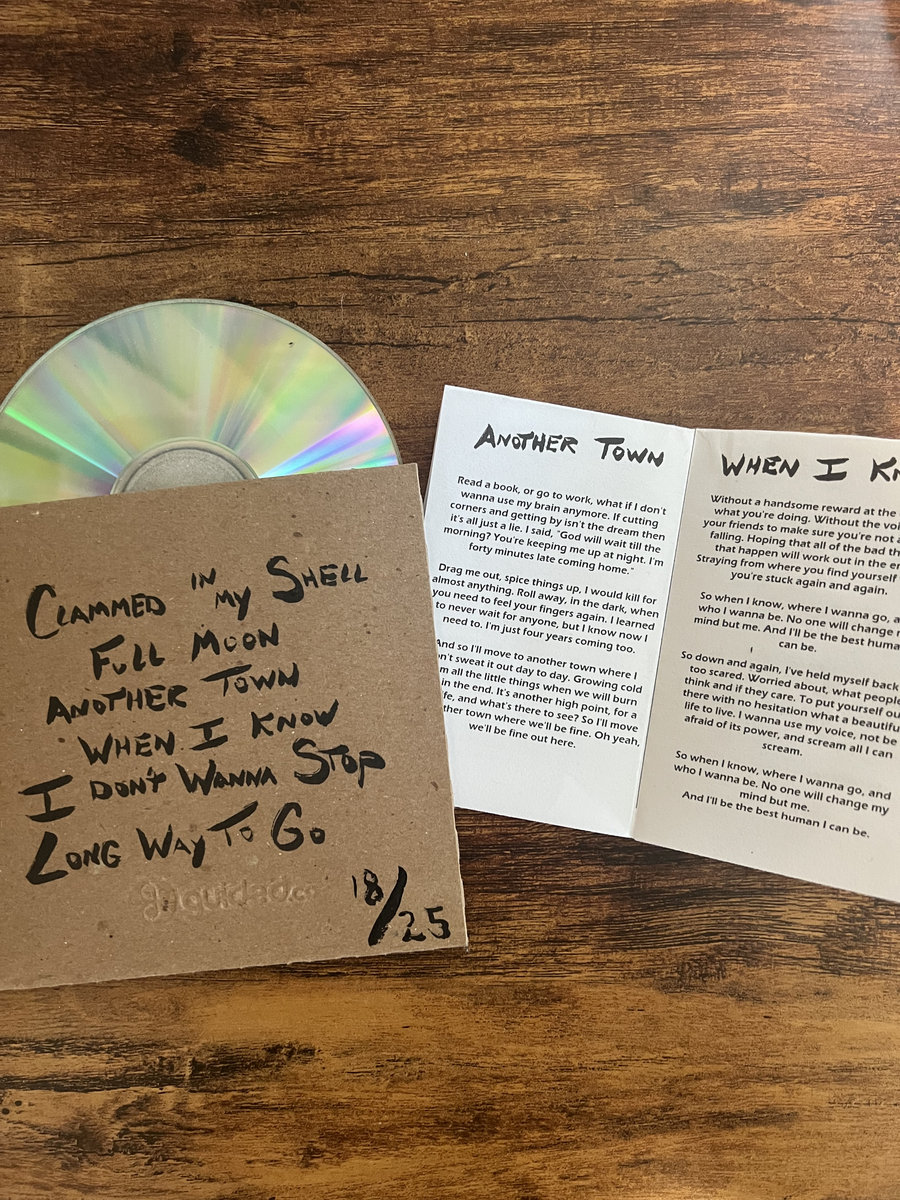 CLAMMED IN MY SHELL
FULL MOON
ANOTHER TOWN
WHEN I KNOW
I DON'T WANNA STOP
LONG WAY TO GO
18/25
ANOTHER TOWN
Read a book, or go to work, what if I don't
wanna use my brain anymore. If cutting
corners and getting by isn't the dream then
it's all just a lie. I said, "God will wait till the
morning? You're keeping me up at night. I'm
forty minutes late coming home."
Drag me out, spice things up, I would kill for
almost anything. Roll away, in the dark, when
you need to feel your fingers again. I learned
to never wait for anyone, but I know now I
need to. I'm just four years coming too.
And so I'll move to another town where I
n't sweat it out day to day. Growing cold
m all the little things when we will burn
in the end. It's another high point, for a
fe, and what's there to see? So I'll move
ther town where we'll be fine. Oh yeah,
we'll be fine out here.
WHEN I KN
Without a handsome reward at the
what you're doing. Without the voi
your friends to make sure you're not a
falling. Hoping that all of the bad th
that happen will work out in the en
Straying from where you find yourself
you're stuck again and again.
So when I know, where I wanna go, a
who I wanna be. No one will change
mind but me. And I'll be the best huma
can be.
So down and again, I've held myself back
too scared. Worried about, what people
think and if they care. To put yourself ou
there with no hesitation what a beautifu
life to live. I wanna use my voice, not be
afraid of its power, and scream all I can
scream.
So when I know, where I wanna go, and
who I wanna be. No one will change my
mind but me.
And I'll be the best human I can be.